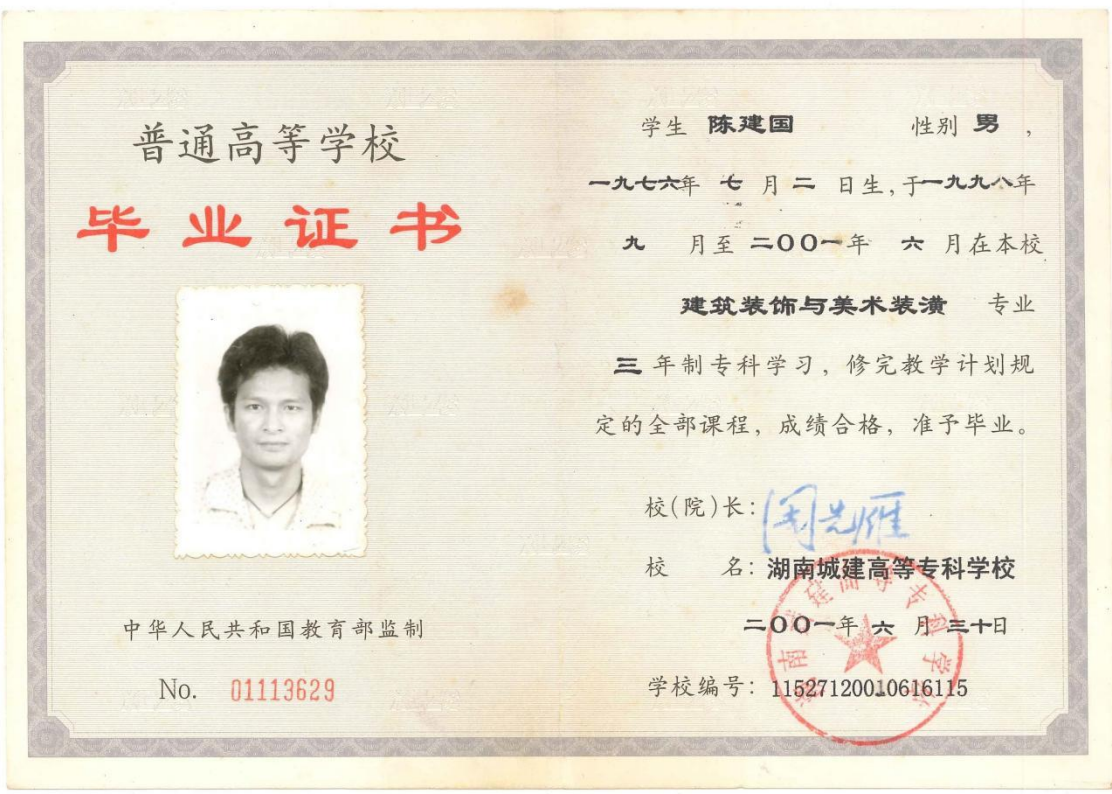 普通高等学校
毕业证书
中华人民共和国教育部监制
No. 01113629
学生 陈建国 性别 男 ，
一九七六年 七 月 二 日生，于一九九八年
九 月至 二〇〇一年 六 月在本校
建筑装饰与美术装潢 专业
三 年制专科学习，修完教学计划规
定的全部课程，成绩合格，准予毕业。
校（院）长：周先雁
校 名：湖南城建高等专科学校
二〇〇一年 六 月 三十日
学校编号：11527120010616115
湖南城建高等专科学校